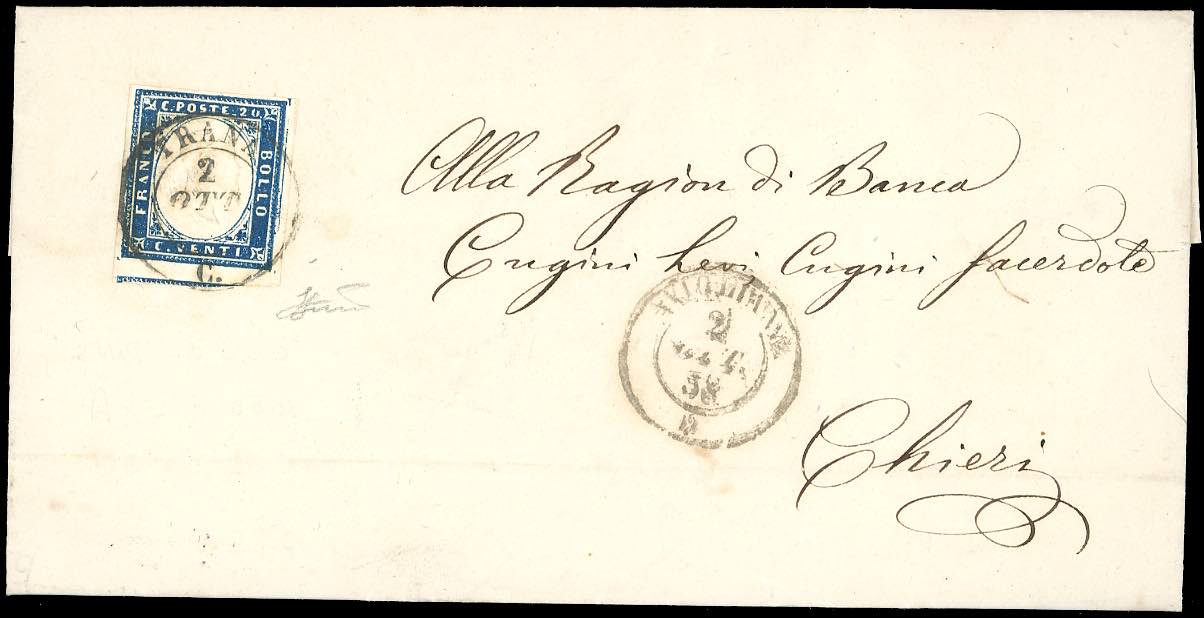 C. POSTE. 20
FRANCO
BOLLO
C. SENTI
TRANA
2
OTT
C.
Alla Ragion di Banca
Cugini Levi, Cugini Sacerdote
2
OTT.
58
Chieri